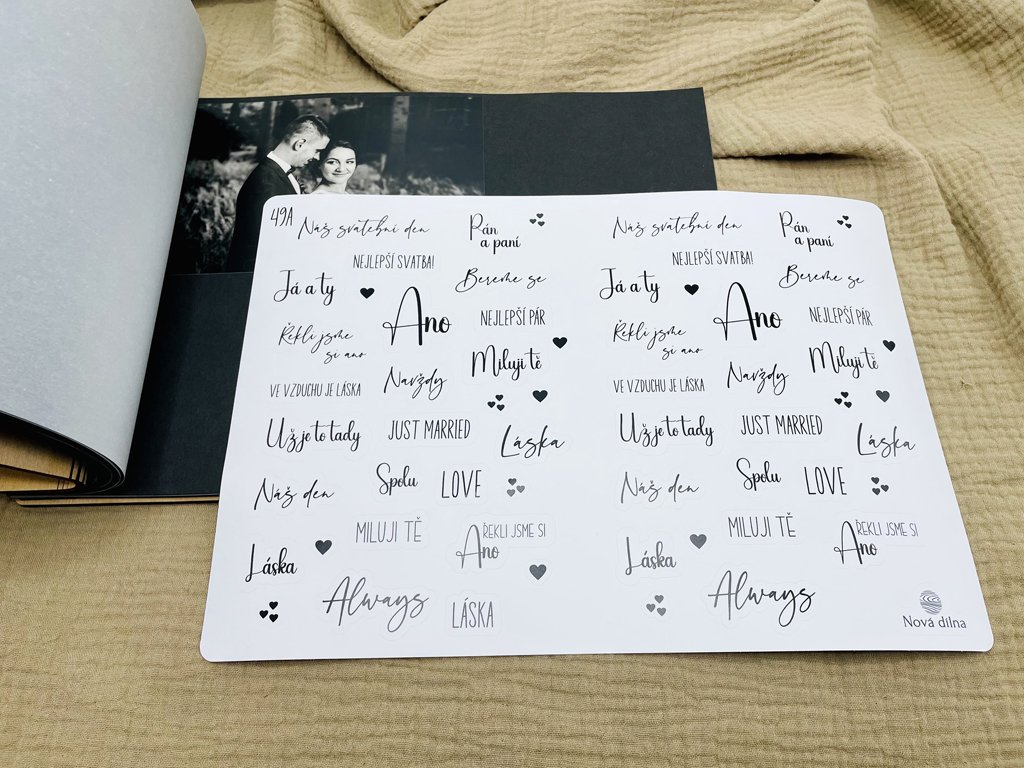 49A
Náš svatební den
Pán
a paní
NEJLEPŠÍ SVATBA!
Já a ty
Bereme se
Ano
NEJLEPŠÍ PÁR
Řekli jsme
si ano
Miluji tě
VE VZDUCHU JE LÁSKA
Navždy
Už je to tady
JUST MARRIED
Láska
Náš den
Spolu
LOVE
MILUJI TĚ
ŘEKLI JSME SI
Ano
Láska
Always
LÁSKA
Náš svatební den
Pán
a paní
NEJLEPŠÍ SVATBA!
Já a ty
Bereme se
Ano
NEJLEPŠÍ PÁR
Řekli jsme
si ano
Miluji tě
VE VZDUCHU JE LÁSKA
Navždy
Už je to tady
JUST MARRIED
Láska
Náš den
Spolu
LOVE
MILUJI TĚ
ŘEKLI JSME SI
Ano
Láska
Always
Nová dílna